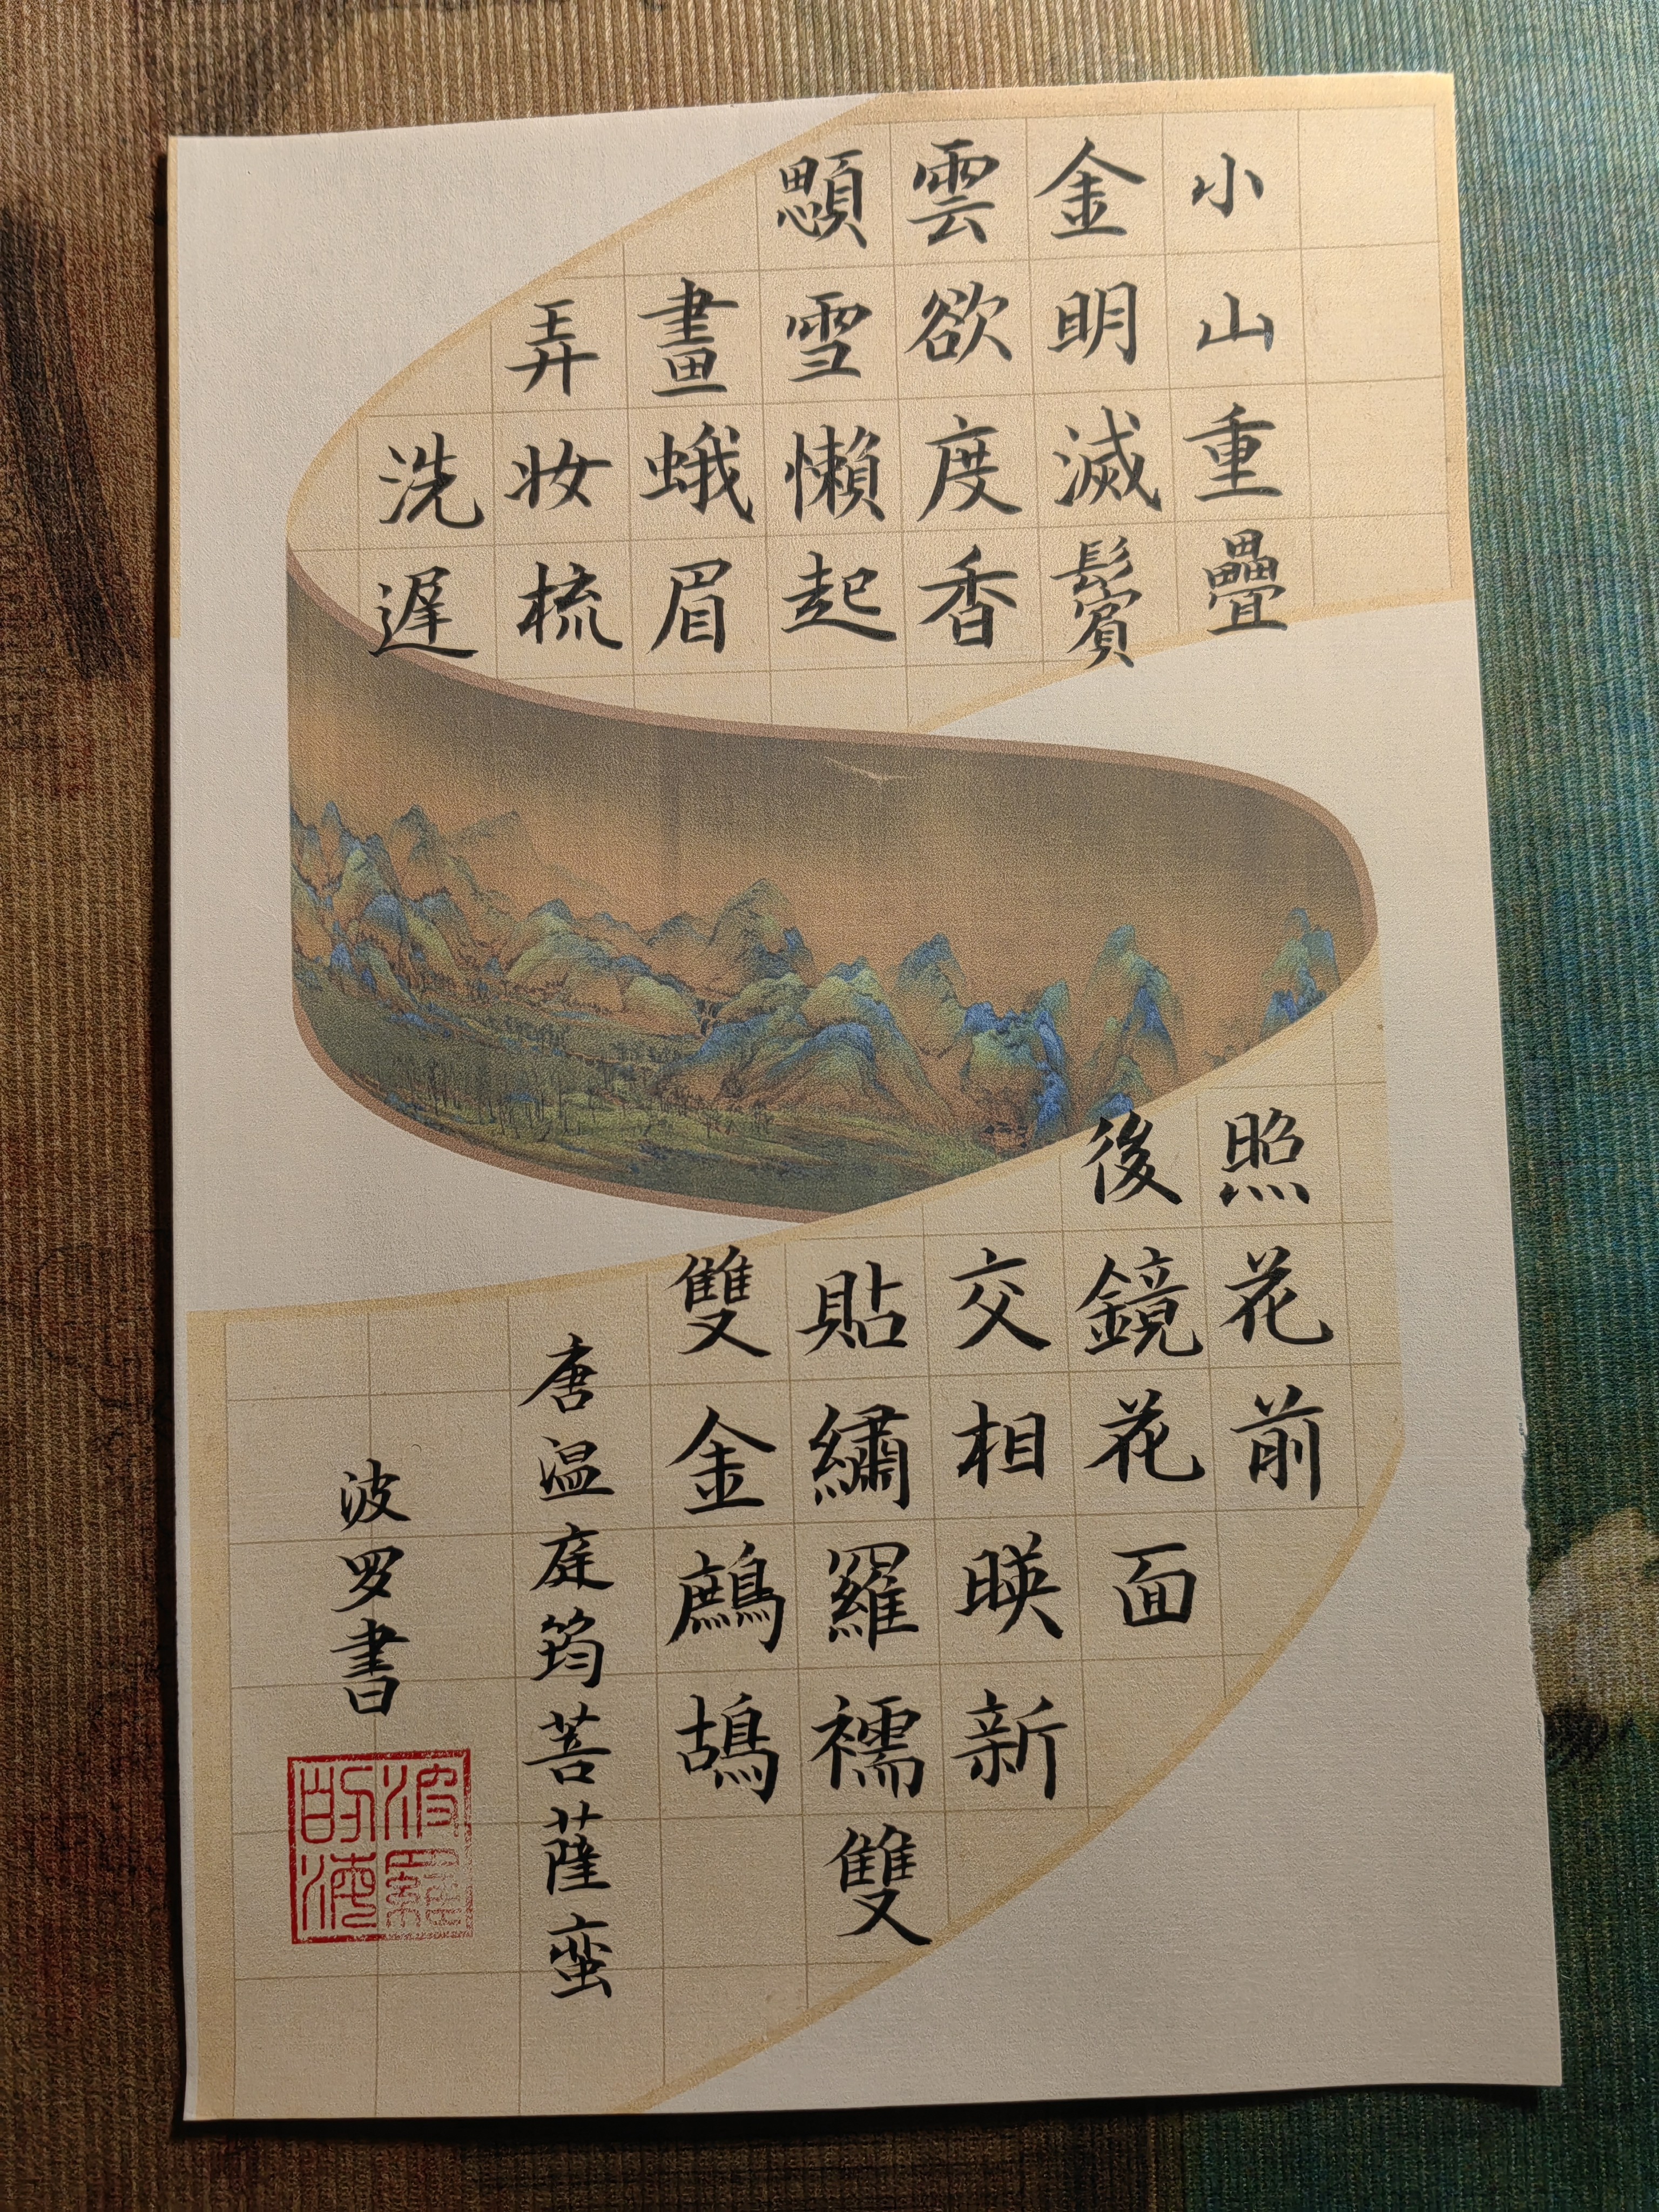 小山重疊
金明滅鬢
雲欲度香
顋雪懶起
畫蛾眉
弄妆梳
洗遲
照花前
後鏡花面
交相暎新
貼繡羅襦雙
雙金鷓鴣
唐温庭筠菩薩蛮
波罗書
波羅
的海